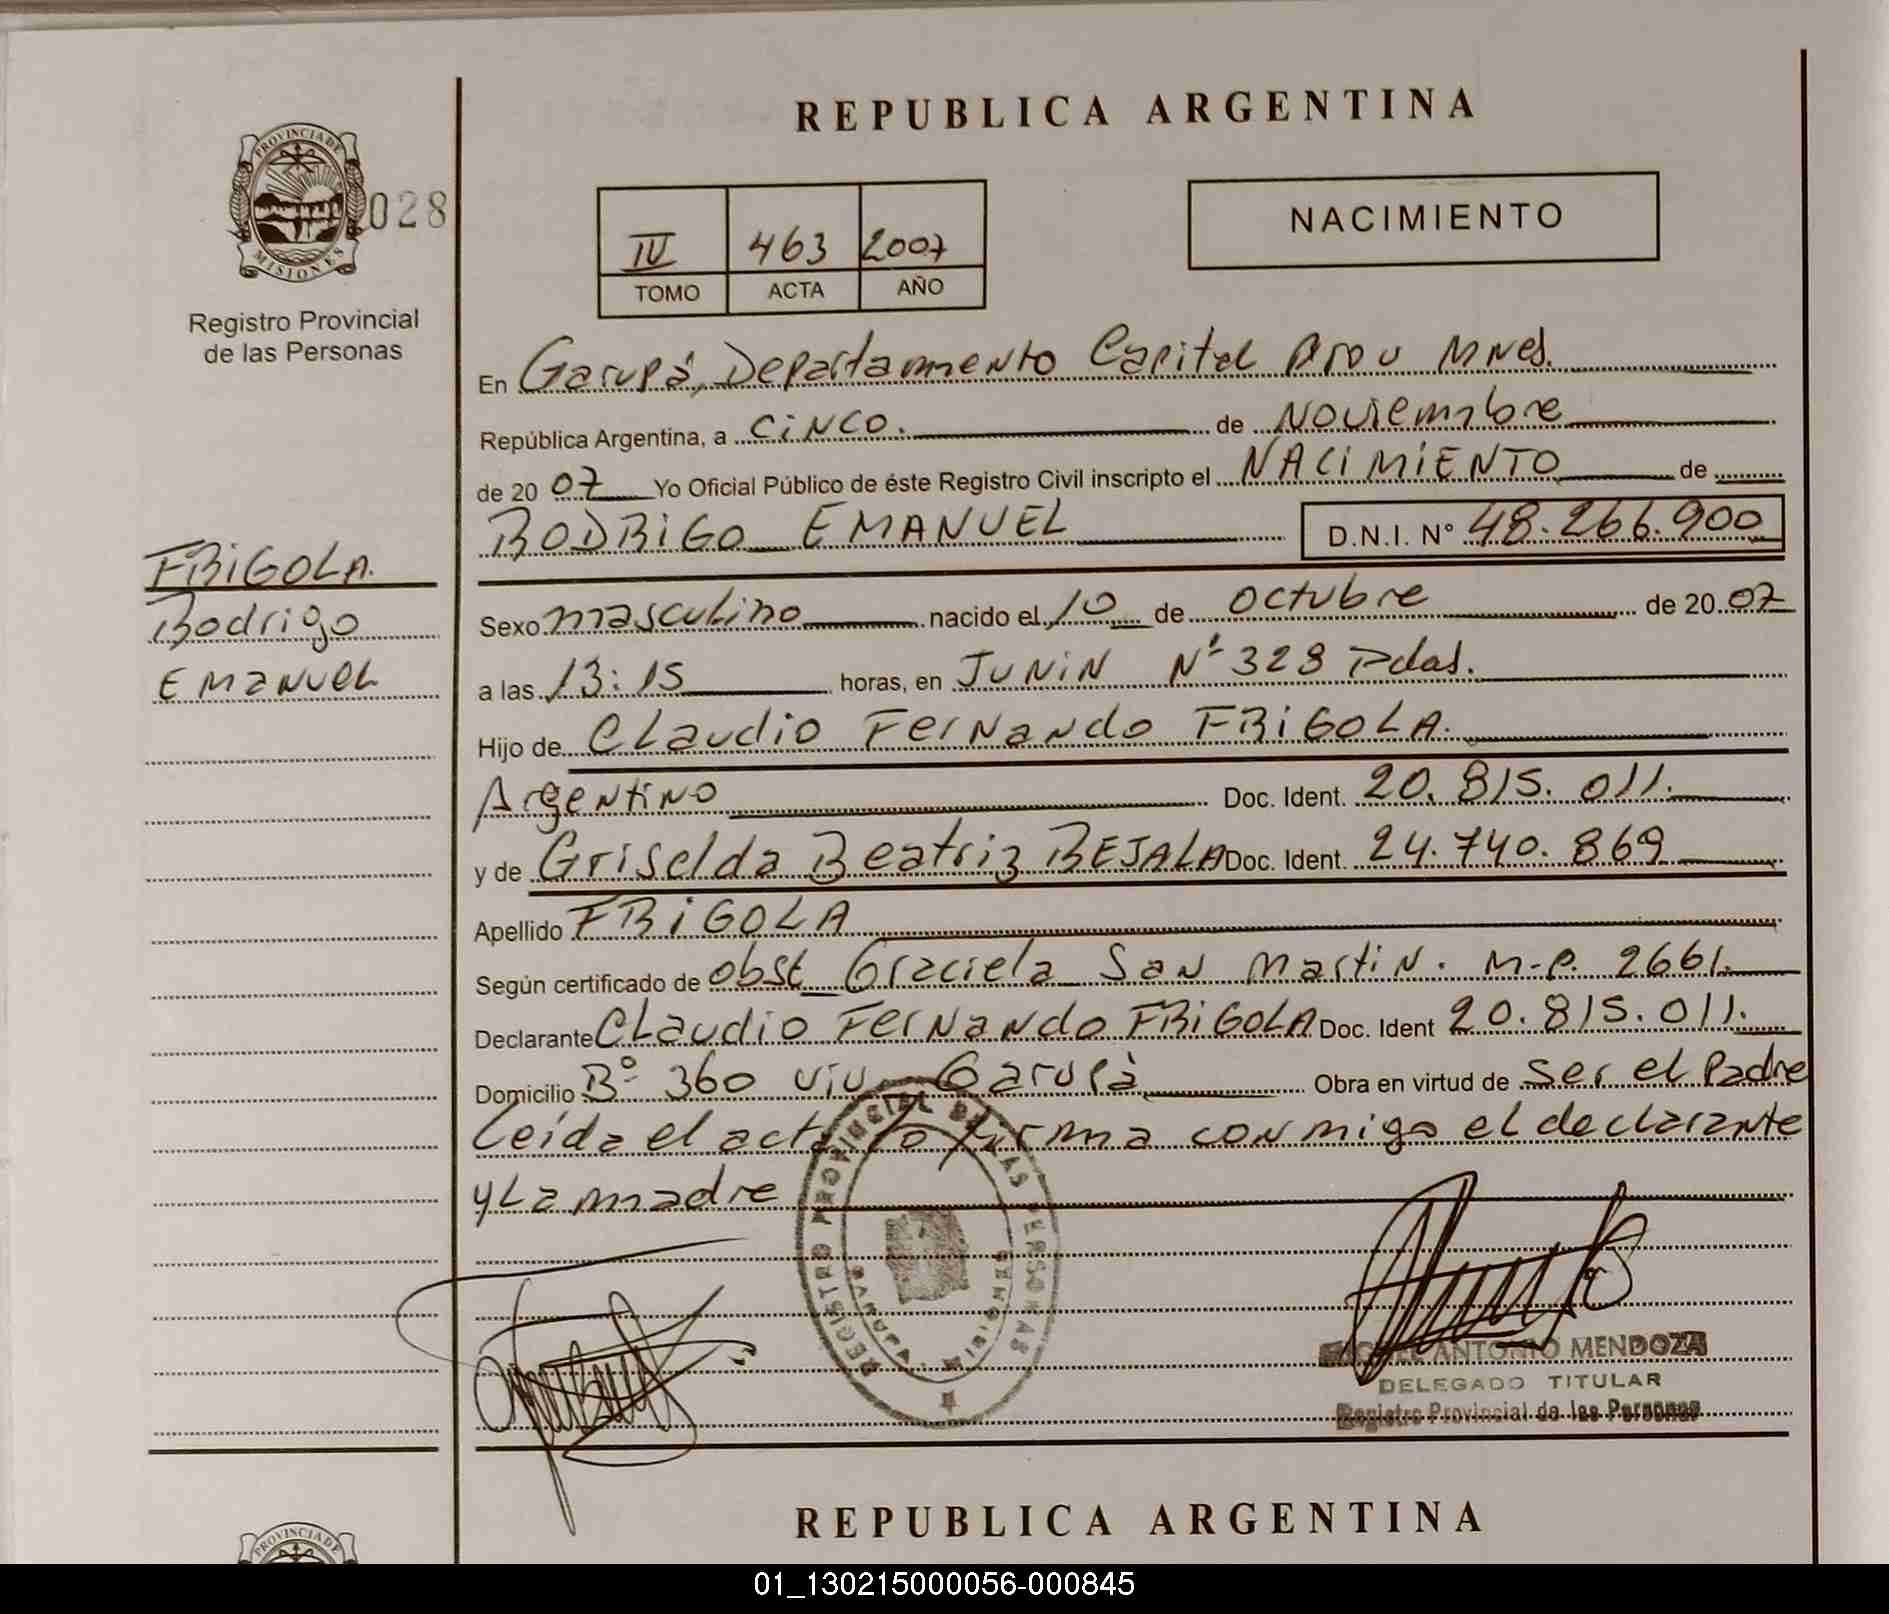 REPUBLICA ARGENTINA
PROVINCIA DE
MISIONES
028
Registro Provincial
de las Personas
IV 463 2007
TOMO ACTA AÑO
NACIMIENTO
En Garupá, Departamento Capital Prov Mnes.
República Argentina, a CINCO. de Noviembre
de 20 07 Yo Oficial Público de éste Registro Civil inscripto el NACIMIENTO de
RODRIGO EMANUEL D.N.I. N° 48.266.900
FRIGOLA.
Rodrigo
EMANUEL
Sexo masculino nacido el 10 de octubre de 20 07
a las 13:15 horas, en JUNIN N° 328 Pdas.
Hijo de Claudio Fernando FRIGOLA.
Argentino Doc. Ident. 20.815.011.
y de Griselda Beatriz BEJALA Doc. Ident. 24.740.869
Apellido FRIGOLA
Según certificado de obst Graciela San Martin. M.P. 2661.
Declarante Claudio Fernando FRIGOLA Doc. Ident 20.815.011.
Domicilio B° 360 viv. Garupà Obra en virtud de ser el Padre
Leída el acta la firma conmigo el declarante
y La madre
REGISTRO PROVINCIAL DE LAS PERSONAS
ANTONIO MENDOZA
DELEGADO TITULAR
Registro Provincial de las Personas
REPUBLICA ARGENTINA
PROVINCIA DE
01_130215000056-000845